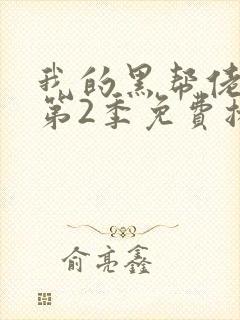 我的黑帮佬
第2季免费
俞亮鑫